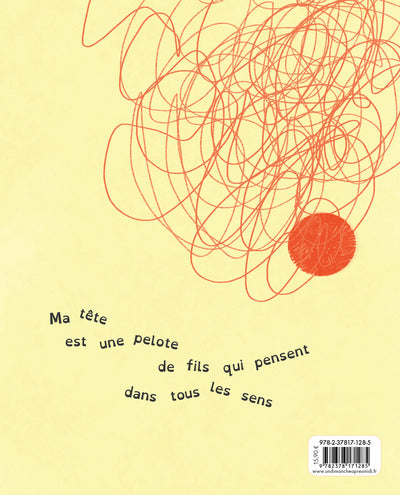 Ma tête
est une pelote
de fils qui pensent
dans tous les sens
978-2-37817-128-5
15,90 €
9 782378 171285
www.undimancheapresmidi.fr